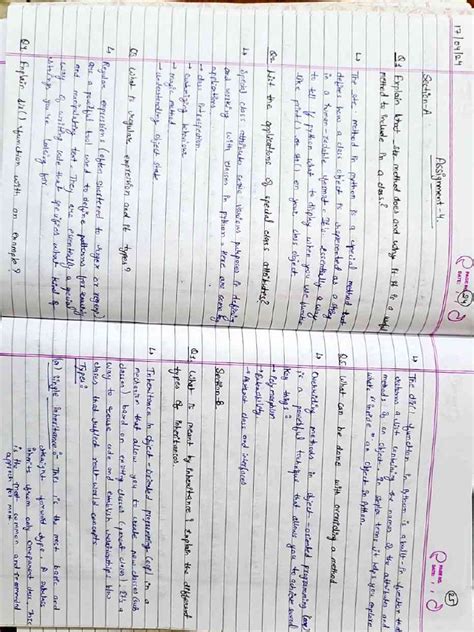 17/04/24
PAGE NO.
DATE:
24
Assignment-4
Section-A
Q1 Explain what _str_ method does and why it is a useful
method to include in a class?
↳ The _str_ method in python is a special method that
defines how a class object is represented as a string
in a human-readable format. It's essentially a way
to tell python what to display when you use functions
like print() or str() on your class object.
Q2 List the applications of special class attributes?
↳ Special class attributes serve various purposes in defining
and working with classes in python. Here are some key
applications
→ class Introspection
→ customizing behaviour
→ magic method
→ understanding object state
Q3 What is regular expression and its types?
↳ Regular expressions (often shortened to regex or regexp)
are a powerful tool used to define patterns for searching
and manipulating text. They are essentially a special
way of writing code that specifies what kind of
strings you're looking for.
Q4 Explain dir() function with an example?
PAGE NO.
DATE:
25
↳ The dir() function in Python is a built-in function that
returns a list containing the names of the attributes and
methods of an object. In simpler terms, it helps you explore
what's inside an object in Python.
Q5 What can be done with overriding a method
↳ Overriding methods in object-oriented programming (oop)
is a powerful technique that allows you to achieve several
key things?
→ Polymorphism
→ Extensibility
→ Abstract class and interfaces
Section-B
Q1 What is meant by Inheritance? Explain the different
types of Inheritances
↳ Inheritance in object-oriented programming (oop) is a
mechanism that allows you to create new classes (sub
classes) based on existing classes (parent class). It's a
way to reuse code and establish relationships between
classes that reflect real-world concepts
Types:
(a) Single Inheritance:- This is the most basic and
straight forward type. A subclass
inherits from only one parent class. This
is the most common and recommended
approach for most